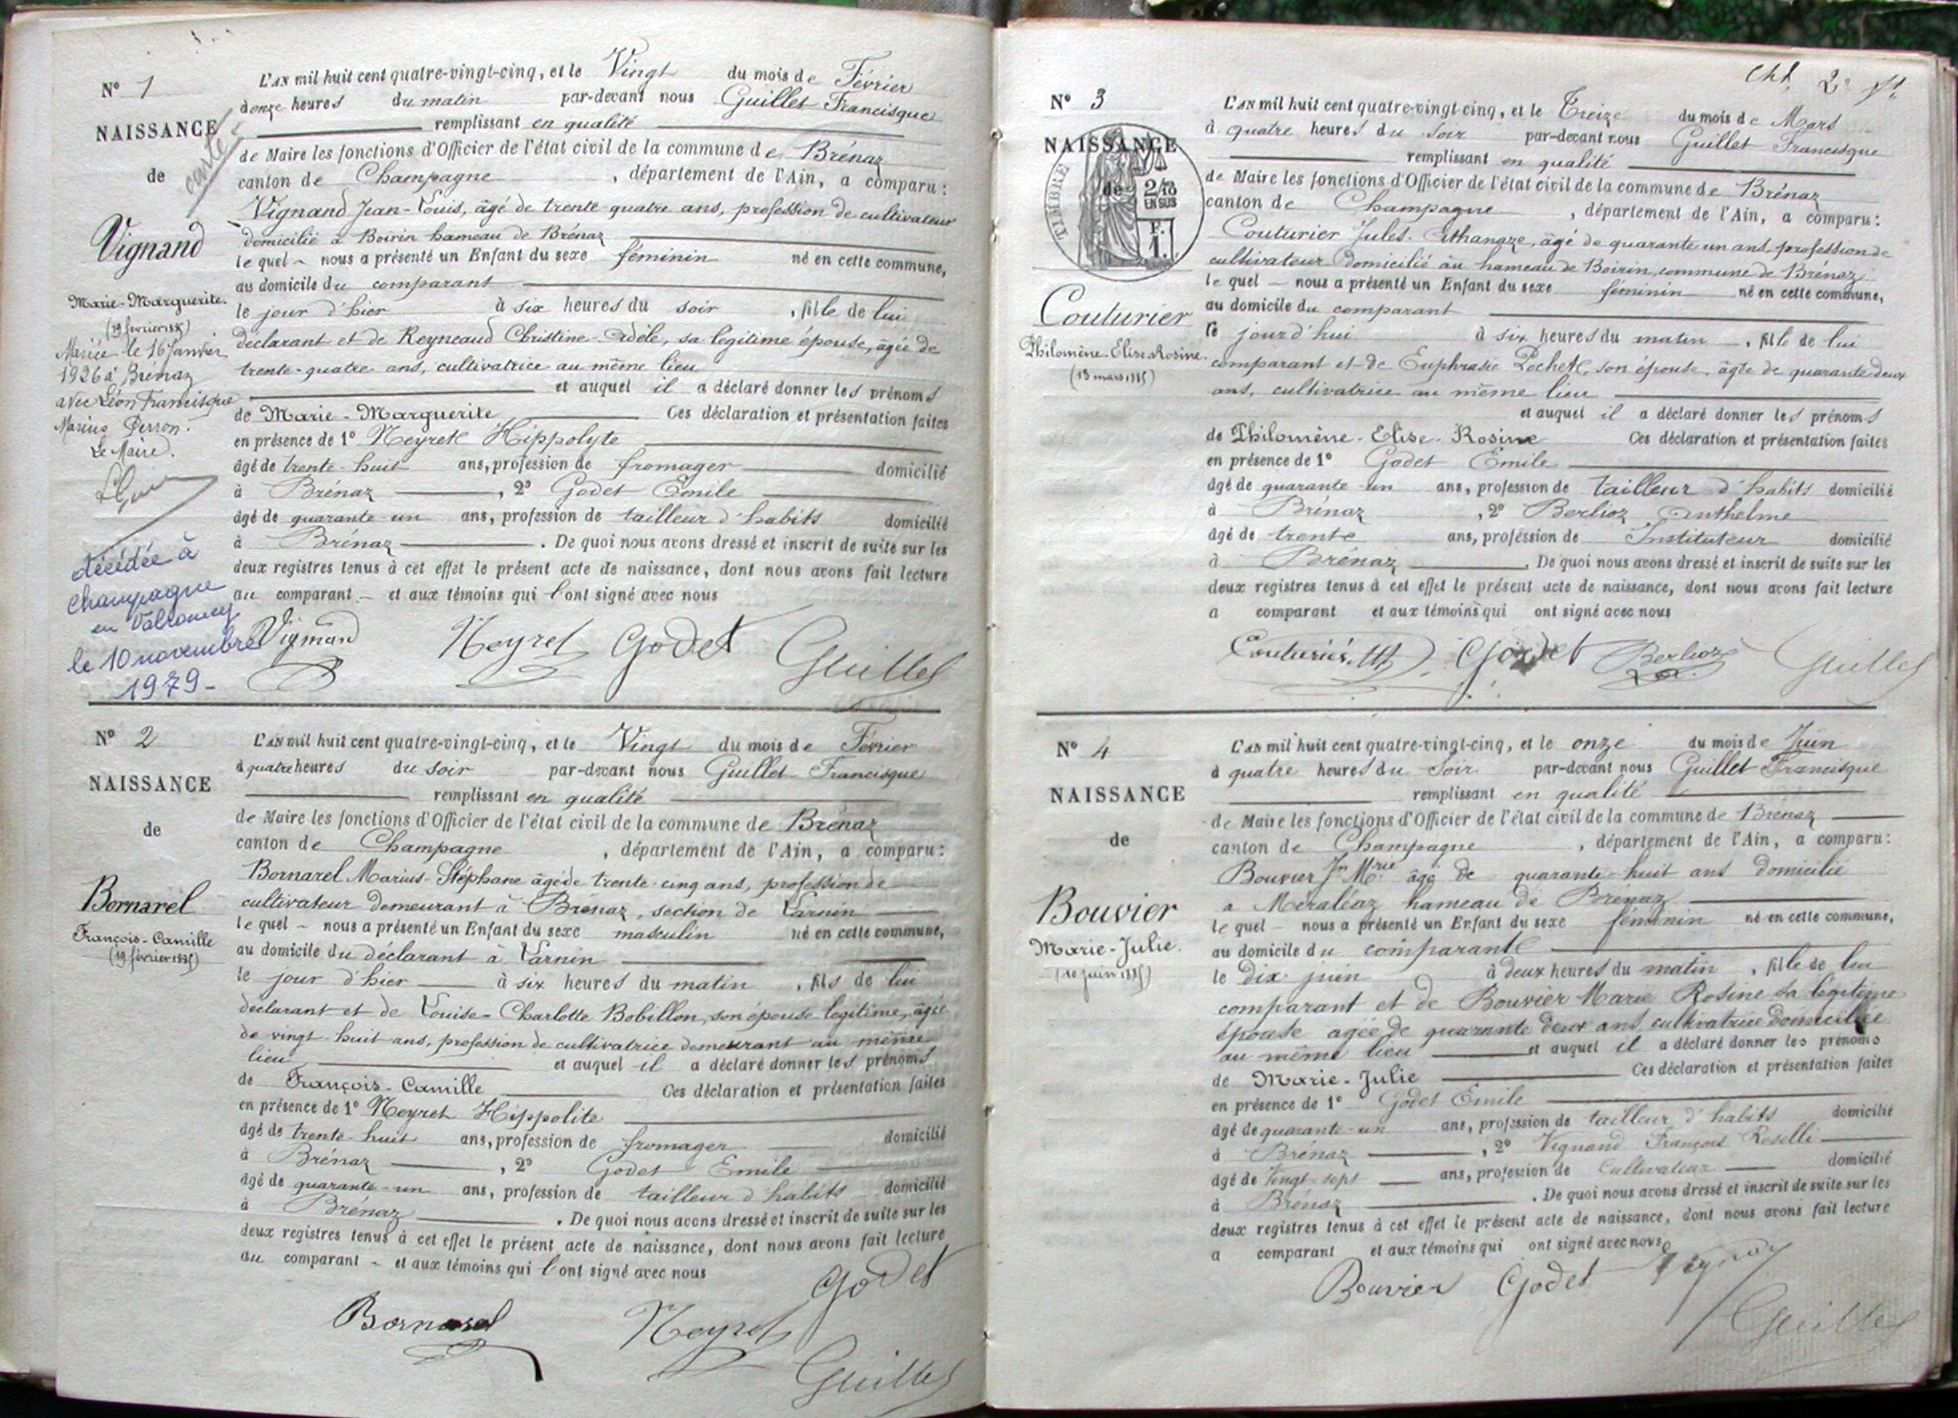 N° 1
NAISSANCE
de
Vignand
Marie-Marguerite.
(19 février 1885)
Mariée le 16 Janvier
1926 à Brénaz
avec Léon Francisque
Marius Perron.
Le Maire.
décédée à
Champagne
en Valromey
le 10 novembre
1979-
carte
L'AN mil huit cent quatre-vingt-cinq, et le Vingt du mois de Février
à onze heures du matin par-devant nous Guillet Francisque
remplissant en qualité
de Maire les fonctions d'Officier de l'état civil de la commune de Brénaz
canton de Champagne, département de l'Ain, a comparu:
Vignand Jean-Louis, âgé de trente quatre ans, profession de cultivateur
domicilié à Boirin hameau de Brénaz
lequel - nous a présenté un Enfant du sexe féminin né en cette commune,
au domicile du comparant
le jour d'hier à six heures du soir, fille de lui
déclarant et de Reyneaud Christine-Adèle, sa légitime épouse, âgée de
trente-quatre ans, cultivatrice au même lieu
et auquel il a déclaré donner les prénoms
de Marie-Marguerite Ces déclaration et présentation faites
en présence de 1° Neyret Hippolyte
âgé de trente-huit ans, profession de fromager domicilié
à Brénaz, 2° Godet Emile
âgé de quarante-un ans, profession de tailleur d'habits domicilié
à Brénaz. De quoi nous avons dressé et inscrit de suite sur les
deux registres tenus à cet effet le présent acte de naissance, dont nous avons fait lecture
au comparant - et aux témoins qui l'ont signé avec nous
Vignand Neyret Godet Guillet
N° 2
NAISSANCE
de
Bornarel
François-Camille
(19 février 1885)
L'AN mil huit cent quatre-vingt-cinq, et le Vingt du mois de Février
à quatre heures du soir par-devant nous Guillet Francisque
remplissant en qualité
de Maire les fonctions d'Officier de l'état civil de la commune de Brénaz
canton de Champagne, département de l'Ain, a comparu:
Bornarel Marius-Stéphane âgé de trente-cinq ans, profession de
cultivateur demeurant à Brénaz, section de Larnin
lequel - nous a présenté un Enfant du sexe masculin né en cette commune,
au domicile du déclarant à Larnin
le jour d'hier à six heures du matin, fils de lui
déclarant et de Louise-Charlotte Bobillon, son épouse légitime, âgée
de vingt-huit ans, profession de cultivatrice demeurant au même
lieu et auquel il a déclaré donner les prénoms
de François-Camille Ces déclaration et présentation faites
en présence de 1° Neyret Hippolite
âgé de trente-huit ans, profession de fromager domicilié
à Brénaz, 2° Godet Emile
âgé de quarante-un ans, profession de tailleur d'habits domicilié
à Brénaz. De quoi nous avons dressé et inscrit de suite sur les
deux registres tenus à cet effet le présent acte de naissance, dont nous avons fait lecture
au comparant - et aux témoins qui l'ont signé avec nous
Godet
Bornarel Neyret
Guillet
N° 3
NAISSANCE
de
TIMBRE
2/10
EN SUS
F.
1.
Couturier
Philomène-Elise-Rosine.
(13 mars 1885)
L'AN mil huit cent quatre-vingt-cinq, et le Treize du mois de Mars
à quatre heures du soir par-devant nous Guillet Francisque
remplissant en qualité
de Maire les fonctions d'Officier de l'état civil de la commune de Brénaz
canton de Champagne, département de l'Ain, a comparu:
Couturier Jules-Athanaze, âgé de quarante un ans, profession de
cultivateur domicilié au hameau de Boirin, commune de Brénaz
lequel - nous a présenté un Enfant du sexe féminin né en cette commune,
au domicile du comparant
le jour d'hui à six heures du matin, fille de lui
comparant et de Euphrasie Pochet, son épouse, âgée de quarante deux
ans, cultivatrice au même lieu
et auquel il a déclaré donner les prénoms
de Philomène-Elise-Rosine Ces déclaration et présentation faites
en présence de 1° Godet Emile
âgé de quarante-un ans, profession de tailleur d'habits domicilié
à Brénaz, 2° Berlioz Anthelme
âgé de trente ans, profession de Instituteur domicilié
à Brénaz. De quoi nous avons dressé et inscrit de suite sur les
deux registres tenus à cet effet le présent acte de naissance, dont nous avons fait lecture
a comparant et aux témoins qui ont signé avec nous
Couturier Godet Berlioz Guillet
N° 4
NAISSANCE
de
Bouvier
Marie-Julie.
(10 juin 1885)
L'AN mil huit cent quatre-vingt-cinq, et le onze du mois de Juin
à quatre heures du Soir par-devant nous Guillet Francisque
remplissant en qualité
de Maire les fonctions d'Officier de l'état civil de la commune de Brénaz
canton de Champagne, département de l'Ain, a comparu:
Bouvier Jn Mrie âgé de quarante-huit ans domicilié
a Méraléaz hameau de Brénaz
lequel - nous a présenté un Enfant du sexe féminin né en cette commune,
au domicile du comparant
le dix juin à deux heures du matin, fille de lui
comparant et de Bouvier Marie Rosine sa légitime
épouse agée de quarante deux ans, cultivatrice domiciliée
au même lieu et auquel il a déclaré donner les prénoms
de Marie-Julie Ces déclaration et présentation faites
en présence de 1° Godet Emile
âgé de quarante-un ans, profession de tailleur d'habits domicilié
à Brénaz, 2° Vignand François Roselli
âgé de Vingt-sept ans, profession de Cultivateur domicilié
à Brénaz. De quoi nous avons dressé et inscrit de suite sur les
deux registres tenus à cet effet le présent acte de naissance, dont nous avons fait lecture
a comparant et aux témoins qui ont signé avec nous
Bouvier Godet
Guillet